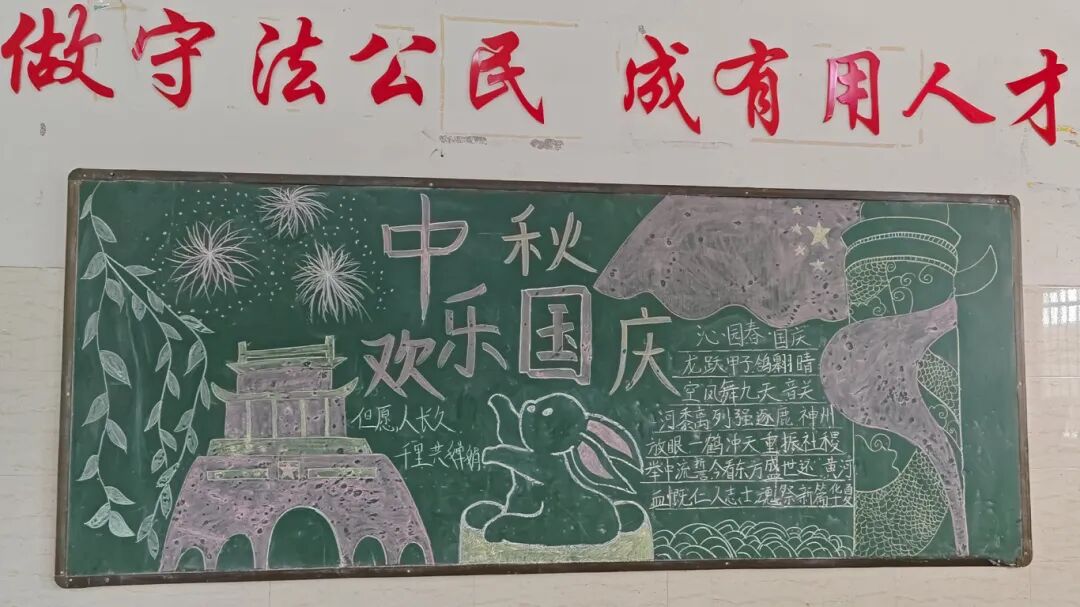 做守法公民 成有用人才
中秋
欢乐国庆
但愿人长久
千里共婵娟
沁园春·国庆
龙跃甲子鸽翱晴
空凤舞九天 音关
河黍离列强逐鹿 神州
放眼一鹤冲天重振社稷
举中流誓今看东方盛世还 黄河
血慨仁人志士 祭新篇华夏